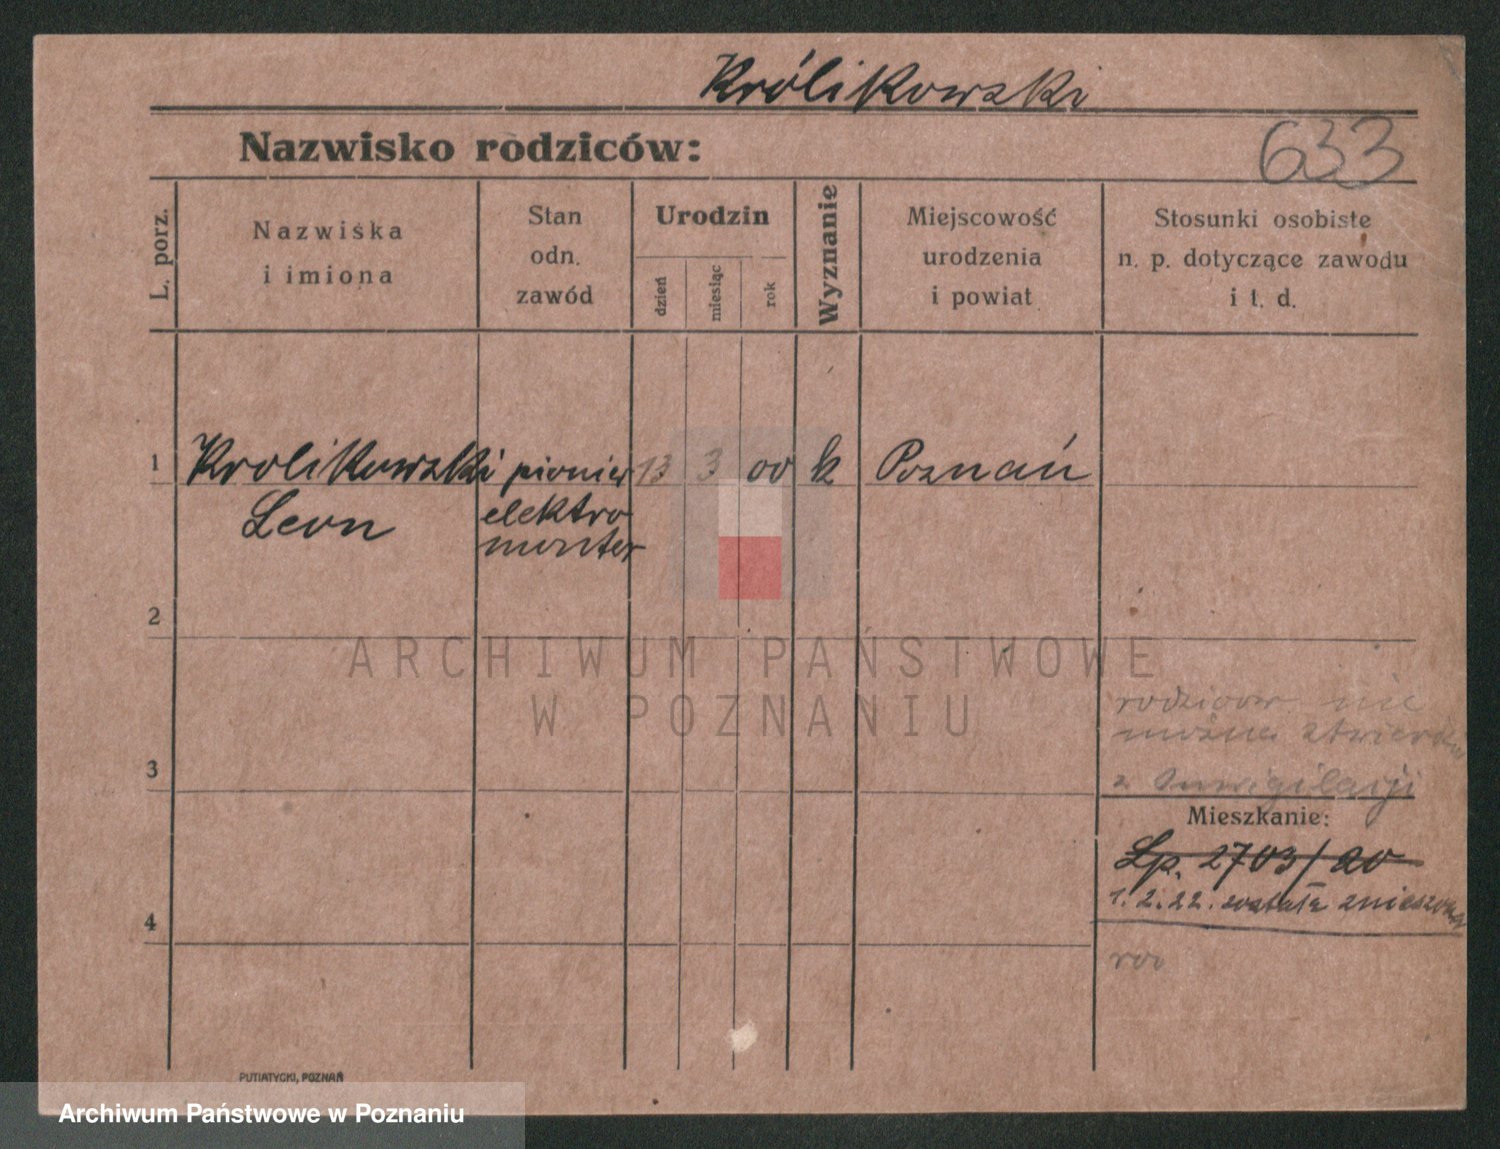 Królikowski
633
Nazwisko rodziców:
L. porz.
Nazwiska
i imiona
Stan
odn.
zawód
Urodzin
dzień
miesiąc
rok
Wyznanie
Miejscowość
urodzenia
i powiat
Stosunki osobiste
n. p. dotyczące zawodu
i t. d.
1
Krolikowski pionier 13 3 00 k Poznań
Leon
elektro
monter
2
ARCHIWUM PAŃSTWOWE
W POZNANIU
rodziców nie
można stwierdz
3
z
Mieszkanie:
Lp. 2703/20
1.2.22. została zniesiona
4
PUTIATYCKI, POZNAŃ
Archiwum Państwowe w Poznaniu